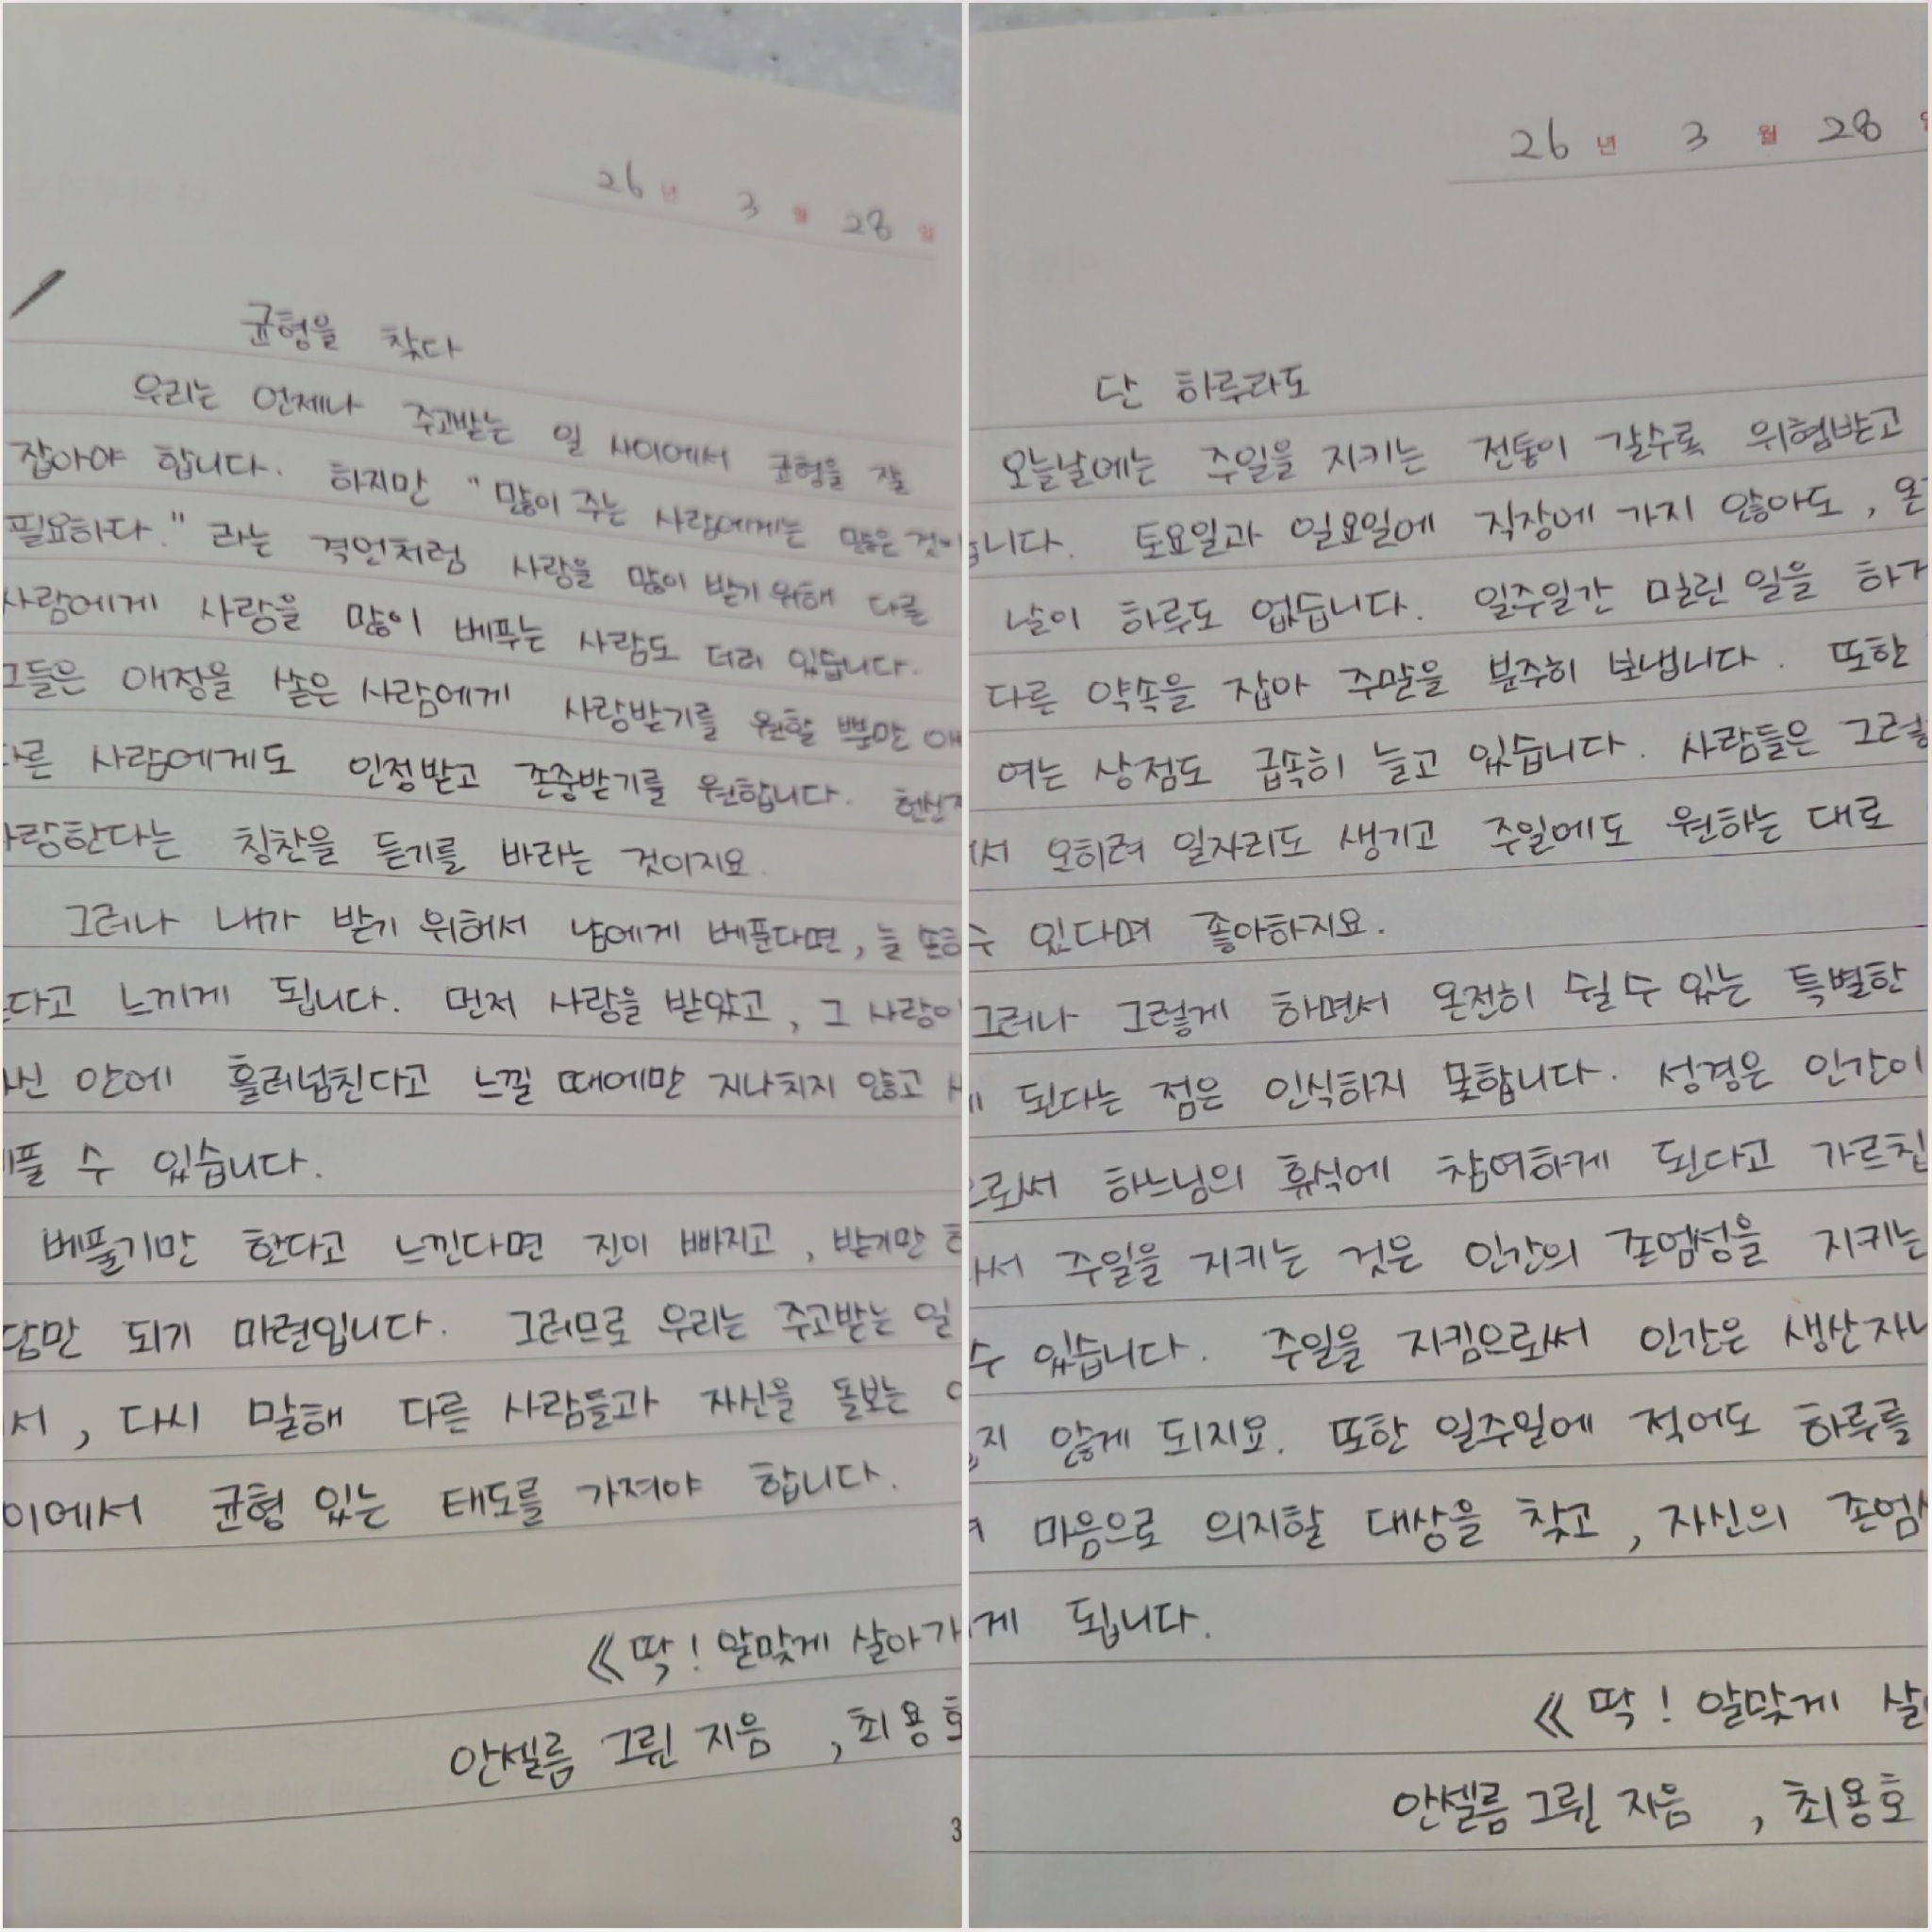 26년 3월 28일
균형을 찾다
우리는 언제나 주고받는 일 사이에서 균형을 잘
잡아야 합니다. 하지만 "많이 주는 사람에게는 많은 것이
필요하다." 라는 격언처럼 사랑을 많이 받기 위해 다른
사람에게 사랑을 많이 베푸는 사람도 더러 있습니다.
그들은 애정을 쏟은 사람에게 사랑받기를 원할 뿐만
다른 사람에게도 인정받고 존중받기를 원합니다.
사랑한다는 칭찬을 듣기를 바라는 것이지요.
그러나 내가 받기 위해서 남에게 베푼다면, 늘
다고 느끼게 됩니다. 먼저 사랑을 받았고, 그 사랑이
안에 흘러넘친다고 느낄 때에만 지나치지 않고
수 있습니다.
베풀기만 한다고 느낀다면 진이 빠지고, 받기만
되기 마련입니다. 그러므로 우리는 주고받는 일
서, 다시 말해 다른 사람들과 자신을 돌보는
이에서 균형 있는 태도를 가져야 합니다.
《딱! 알맞게 살아가
안셀름 그륀 지음, 최용호
3
26년 3월 28
단 하루라도
오늘날에는 주일을 지키는 전통이 갈수록 위협받고
니다. 토요일과 일요일에 직장에 가지 않아도,
날이 하루도 없습니다. 일주일간 밀린 일을
다른 약속을 잡아 주말을 분주히 보냅니다. 또한
여는 상점도 급속히 늘고 있습니다. 사람들은
서 오히려 일자리도 생기고 주일에도 원하는 대로
수 있다며 좋아하지요.
그러나 그렇게 하면서 온전히 쉴 수 있는 특별한
된다는 점은 인식하지 못합니다. 성경은 인간이
로써 하느님의 휴식에 참여하게 된다고
서 주일을 지키는 것은 인간의 존엄성을 지키는
수 있습니다. 주일을 지킴으로써 인간은
지 않게 되지요. 또한 일주일에 적어도 하루를
마음으로 의지할 대상을 찾고, 자신의
게 됩니다.
《딱! 알맞게 살
안셀름 그륀 지음, 최용호